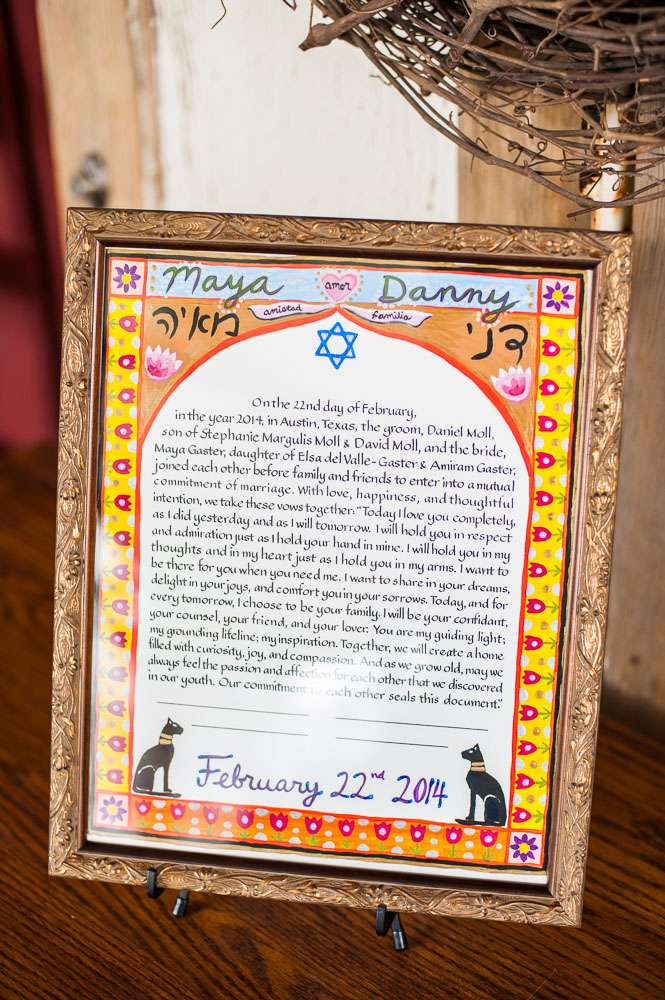 Maya amor Danny
amistad familia
מאיה דני
On the 22nd day of February,
in the year 2014, in Austin, Texas, the groom, Daniel Moll,
son of Stephanie Margulis Moll & David Moll, and the bride,
Maya Gaster, daughter of Elsa del Valle-Gaster & Amiram Gaster,
joined each other before family and friends to enter into a mutual
commitment of marriage. With love, happiness, and thoughtful
intention, we take these vows together: “Today I love you completely,
as I did yesterday and as I will tomorrow. I will hold you in respect
and admiration just as I hold your hand in mine. I will hold you in my
thoughts and in my heart just as I hold you in my arms. I want to
be there for you when you need me. I want to share in your dreams,
delight in your joys, and comfort you in your sorrows. Today, and for
every tomorrow, I choose to be your family. I will be your confidant,
your counsel, your friend, and your lover. You are my guiding light;
my grounding lifeline; my inspiration. Together, we will create a home
filled with curiosity, joy, and compassion. And as we grow old, may we
always feel the passion and affection for each other that we discovered
in our youth. Our commitment to each other seals this document.”
February 22nd 2014